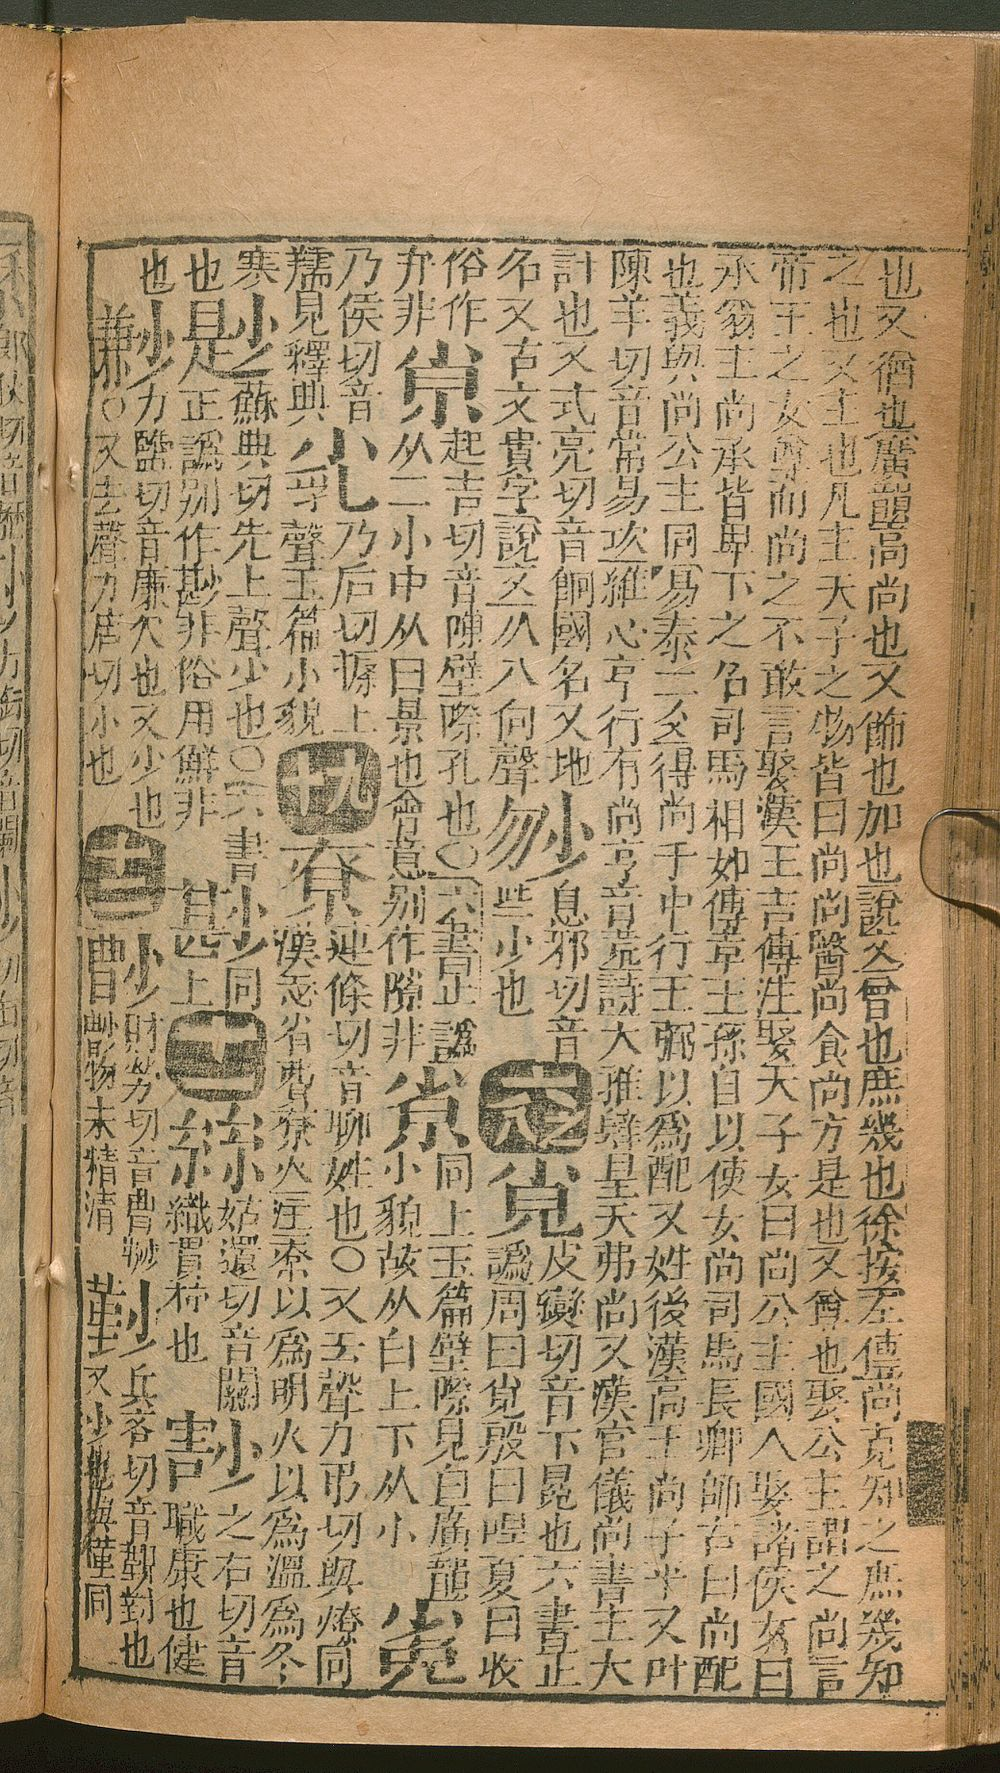 也又猶也廣韻高尚也又飾也加也說文曾也庶幾也徐按左傳尚克知之庶幾知
之也又主也凡主天子之物皆曰尚尚醫尚食尚方是也又尊也娶公主謂之尚言
帝王之女尊而尚之不敢言娶漢王吉傳注娶天子女曰尚公主國人娶諸侯女曰
承翁主尚承皆卑下之名司馬相如傳卓王孫自以使女尚司馬長卿師古曰尚配
也義與尚公主同易泰二爻得尚于中行王弼以為配又姓後漢高士尚子平又叶
陳羊切音常易坎維心亨行有尚亨音荒詩大雅肆皇天弗尚又漢官儀尚書主大
計也又式亮切音餉國名又地
名又古文貴字說文从八向聲
尠息邪切音
些少也
六
尣皮變切音下冕也六書正
譌周曰覍殷曰哻夏曰收
俗作
弁非
𡭴起吉切音隙壁際孔也○六書正譌
从二小中从日景也會意別作隙非
𡭽同上玉篇壁際見白廣韻
小貌故从白上下从小
乃侯切音
羺見釋典
乃后切㨮上
聲玉篇小貌
九
尞連條切音聊姓也○又去聲力弔切與燎同
漢志省費尞火注尞以為明火以為溫為冬
寒
也
尟蘇典切先上聲少也○六書
正譌別作尠非俗用鮮非
尠同
上
十
姑還切音關
織貫杼也
之右切音
職康也健
也
力鹽切音廉欠也又少也
○又去聲力店切小也
十一
財勞切音曹𪍿
𪍿物未精清
兵客切音鞹對也
又少也與僅同